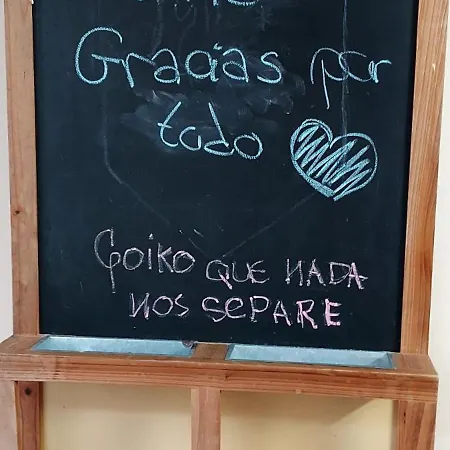 Gracias por
todo
Goiko QUE NADA
NOS SEPARE